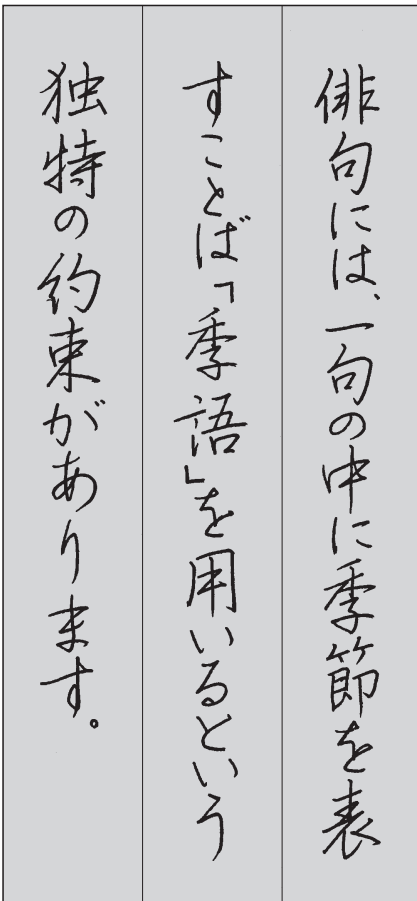 俳句には、一句の中に季節を表
すことば「季語」を用いるという
独特の約束があります。